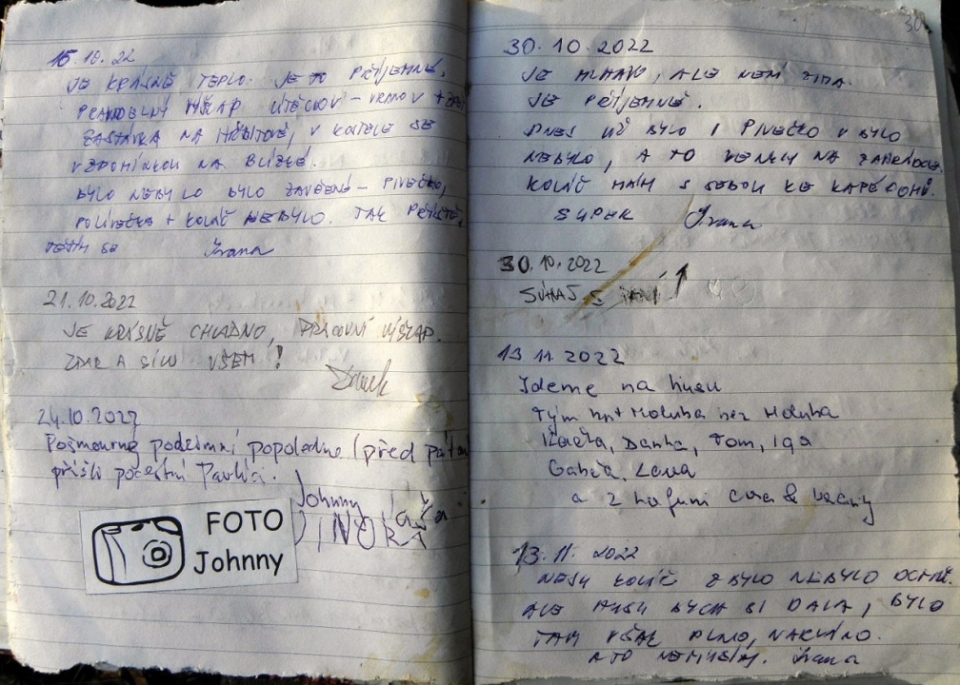 15.10.22
JE KRÁSNĚ TEPLO. JE TO PŘÍJEMNÉ.
PRAVIDELNÝ VÝŠLAP ÚTĚCHOV – VRANOV +
ZASTÁVKA NA HŘBITOVĚ, V KOSTELE SE
VZPOMÍNKOU NA BLÍZKÉ.
BYLO NEBYLO BYLO ZAVŘENÉ – PIVEČKO,
POLÍVEČKA + KOLÁČ NEBYLO. TAK PŘÍŠTĚ,
TĚŠÍM SE Ivana
21.10.2022
JE KRÁSNĚ CHLADNO, PRACOVNÍ VÝŠLAP.
ZDAR A SÍLU VŠEM!
24.10.2022
Pošmourné podzimní popoledne (před
přišli počestní Pavlíci.
Johnny
FOTO
Johnny
30
30.10.2022
JE MLHAVO, ALE NENÍ ZIMA.
JE PŘÍJEMNĚ.
DNES UŽ BYLO I PIVEČKO V BYLO
NEBYLO, A TO VENKU NA ZAHRÁDCE.
KOLÁČ MÁM S SEBOU KE KAFÍČKU.
SUPER Ivana
30.10.2022
13 11 2022
Jdeme na husu
Tým Holuba bez Holuba
Danka, Tom, Iga
Gábča, Lena
a 2 hafani
13.11.2022
NESU KOLÁČ Z BYLO NEBYLO
ALE HUSU BYCH SI DALA, BYLO
TAM VŠAK PLNO, NARVÁNO.
Ivana